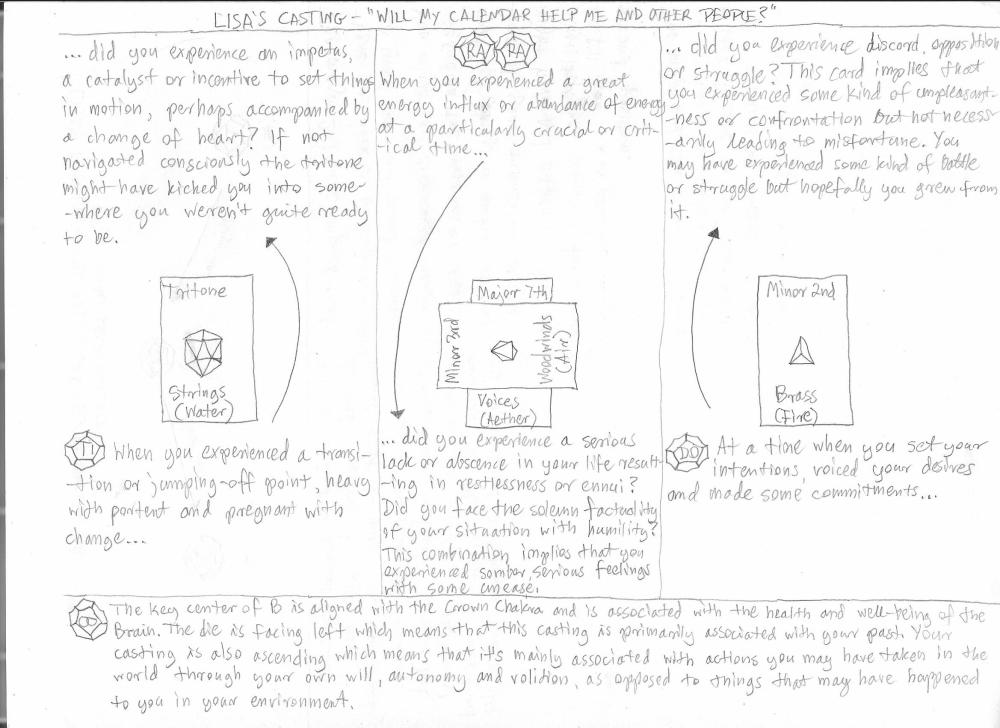 LISA'S CASTING - "WILL MY CALENDAR HELP ME AND OTHER PEOPLE?"
... did you experience an impetus,
a catalyst or incentive to set things
in motion, perhaps accompanied by
a change of heart? If not
navigated consciously the tritone
might have kicked you into some-
-where you weren't quite ready
to be.
Tritone
Strings
(Water)
TI When you experienced a transi-
-tion or jumping-off point, heavy
with portent and pregnant with
change...
RA RA
When you experienced a great
energy influx or abundance of energy
at a particularly crucial or crit-
-ical time...
Major 7th
Minor 3rd
Woodwinds
(Air)
Voices
(Aether)
... did you experience a serious
lack or abscence in your life result-
-ing in restlessness or ennui?
Did you face the solemn factuality
of your situation with humility?
This combination implies that you
experienced somber, serious feelings
with some unease.
... did you experience discord, opposition
or struggle? This card implies that
you experienced some kind of unpleasant-
-ness or confrontation but not necess-
-arily leading to misfortune. You
may have experienced some kind of battle
or struggle but hopefully you grew from
it.
Minor 2nd
Brass
(Fire)
DO At a time when you set your
intentions, voiced your desires
and made some commitments...
B The key center of B is aligned with the Crown Chakra and is associated with the health and well-being of the
Brain. The die is facing left which means that this casting is primarily associated with your past. Your
casting is also ascending which means that it's mainly associated with actions you may have taken in the
world through your own will, autonomy and volition, as opposed to things that may have happened
to you in your environment.